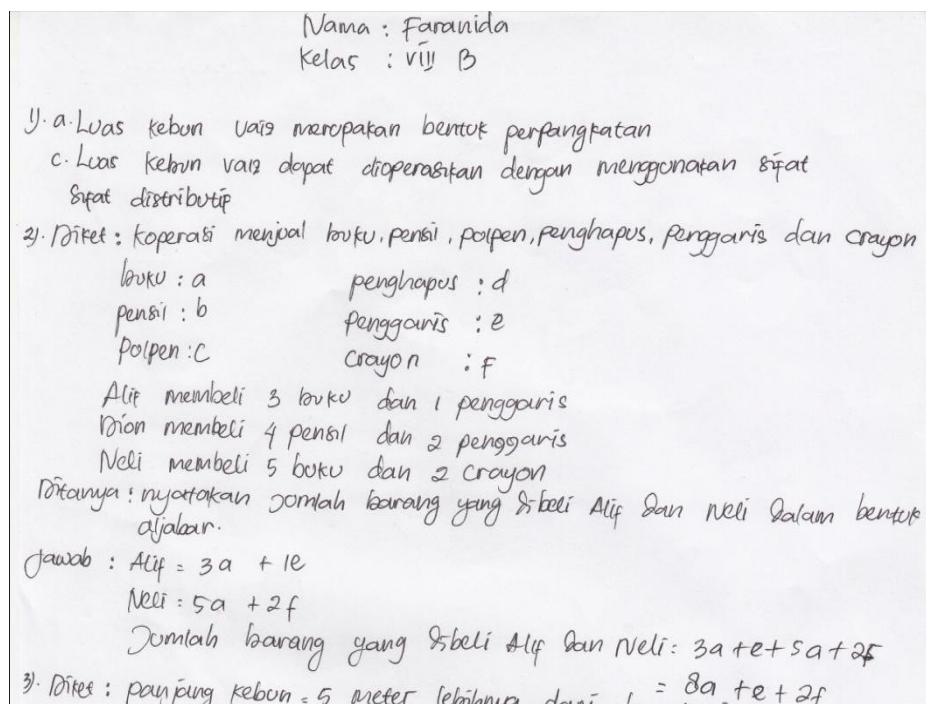 Nama : Faranida
Kelas : VIII B
1). a. Luas kebun Vais merupakan bentuk perpangkatan
c. Luas kebun Vais dapat dioperasikan dengan menggunakan sifat
sifat distributif
2). Diket : Koperasi menjual buku, pensil, polpen, penghapus, penggaris dan crayon
buku : a penghapus : d
pensil : b penggaris : e
polpen : c crayon : f
Alif membeli 3 buku dan 1 penggaris
Dion membeli 4 pensil dan 2 penggaris
Neli membeli 5 buku dan 2 crayon
Ditanya : nyatakan jumlah barang yang dibeli Alif dan Neli dalam bentuk
aljabar.
Jawab : Alif = 3a + 1e
Neli = 5a + 2f
Jumlah barang yang dibeli Alif dan Neli : 3a + e + 5a + 2f
= 8a + e + 2f
3). Diket : panjang kebun = 5 meter lebihnya dari